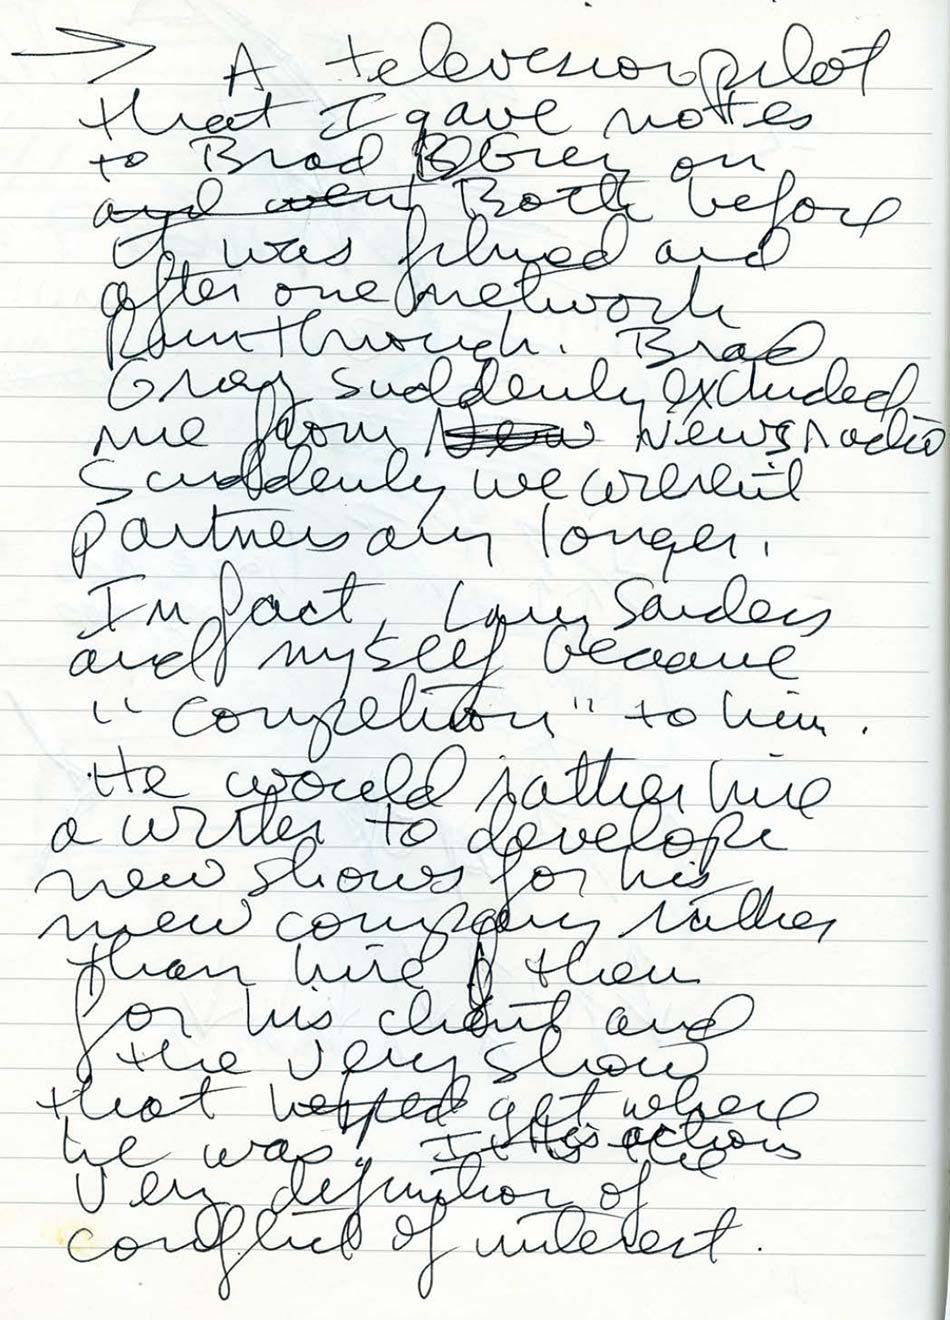 → A television pilot
that I gave nottes
to Brad Grey on
and went Both before
it was filmed and
after one network
Runthrough. Brad
Grey suddenly excluded
me from New Newsradio
Suddenly we weren't
partners any longer.
In fact, Larry Sanders
and myself became
"competition" to him.
He would rather hire
a writer to develope
new shows for his
new company rather
than hire them
for his client and
the very show
that helped get where
he was. It His actions is the
very definition of
conflict of interest.